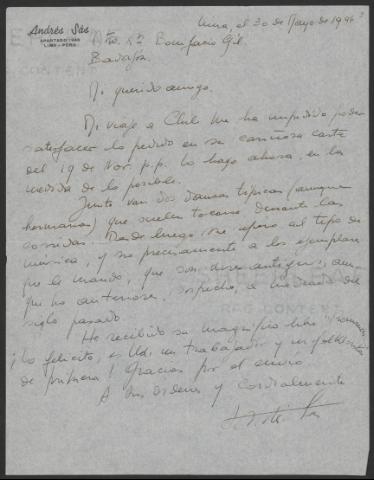 Andrés Sás
APARTADO 1763
LIMA - PERÚ
Lima, el 30 de Mayo de 1946
Mtro. Dn Bonifacio Gil.
Badajoz.
Mi querido amigo.
Mi viaje a Chile me ha impedido poder
satisfacer lo pedido en su cariñosa carta
del 19 de Nov. p.p. Lo hago ahora, en la
medida de lo posible.
Junto van dos danzas típicas (aunque
hermanas) que suelen tocarse durante las
corridas. Desde luego, me refiero al tipo de
música, y no precisamente a los ejemplares
que le mando, que son antiguos, aun-
que no anteriores, sospecho, a mediados del
siglo pasado.
He recibido su magnífico libro
¡Lo felicito, es Ud. un trabajador y un folklorista
de primera! Gracias por el envío.
A sus órdenes y cordialmente